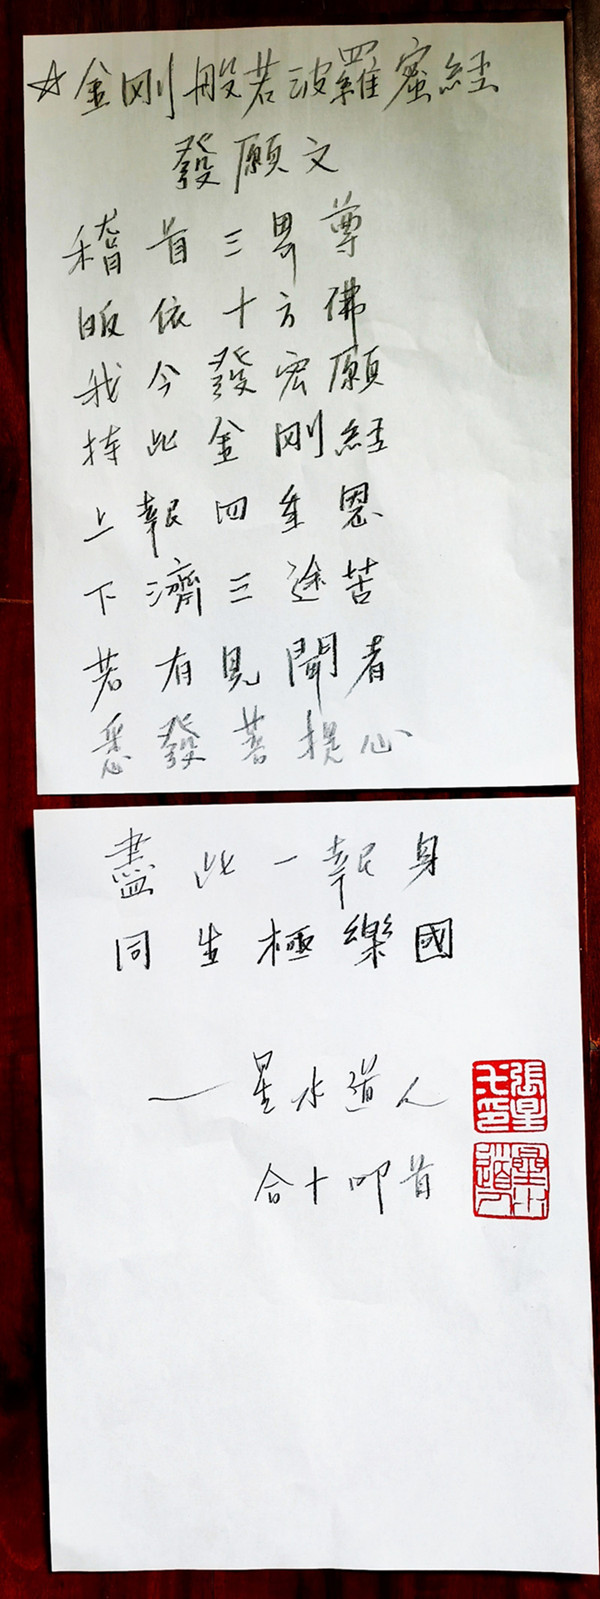 ☆金剛般若波羅蜜經
發願文
稽首三界尊
皈依十方佛
我今發宏願
持此金剛經
上報四重恩
下濟三途苦
若有見聞者
悉發菩提心
盡此一報身
同生極樂國
一星水道人
合十叩首
張星
弋印
星水
道人